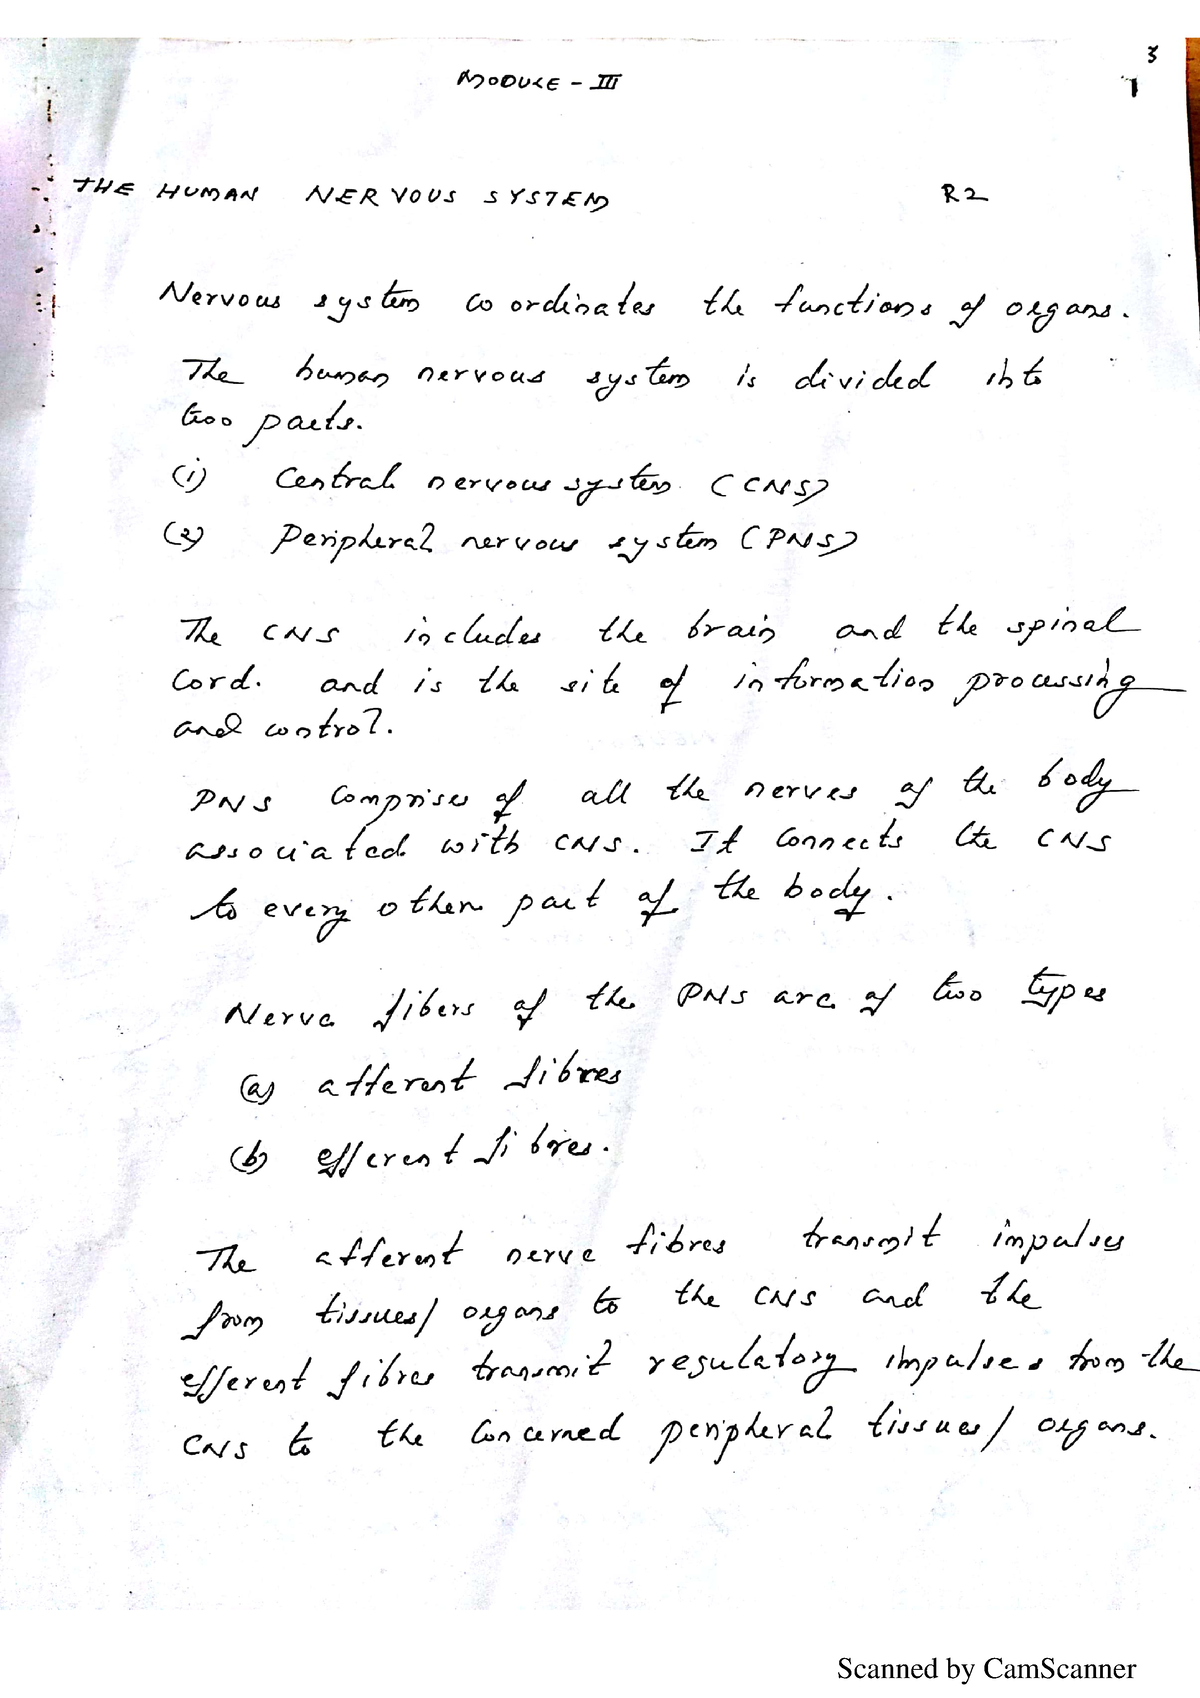 3
MODULE - III
1
THE HUMAN NERVOUS SYSTEM R2
Nervous system coordinates the functions of organs.
The human nervous system is divided into
two parts.
(i) Central nervous system (CNS)
(2) Peripheral nervous system (PNS)
The CNS includes the brain and the spinal
cord. and is the site of information processing
and control.
PNS comprises of all the nerves of the body
associated with CNS. It connects the CNS
to every other part of the body.
Nerve fibers of the PNS are of two types
(a) afferent fibres
(b) efferent fibres.
The afferent nerve fibres transmit impulses
from tissues/organs to the CNS and the
efferent fibres transmit regulatory impulses from the
CNS to the concerned peripheral tissues/organs.
Scanned by CamScanner